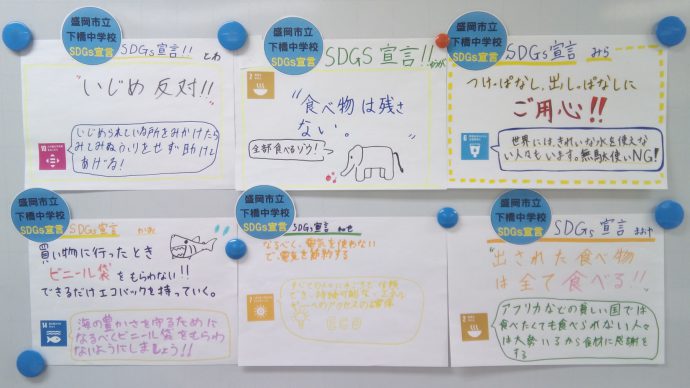 盛岡市立
下橋中学校
SDGs宣言
SDGs宣言!! とわ
"いじめ 反対!!"
いじめられている所をみかけたら
みてみぬふりをせず助けて
あげる!
10
盛岡市立
下橋中学校
SDGs宣言
SDGS 宣言!!
2
"食べ物は残さ
ない。
全部食べるゾウ!
盛岡市立
下橋中学校
SDGs宣言
SDGs宣言 みら
つけっぱなし、出しっぱなしに
ご用心!!
6
世界には、きれいな水を使えな
い人々もいます。無駄使いNG!
盛岡市立
下橋中学校
SDGs宣言
SDGs宣言
買い物に行ったとき
ビニール袋をもらわない!!
できるだけエコバックを持っていく。
14
海の豊かさを守るために
なるべくビニール袋をもらわ
ないようにしましょう!!
盛岡市立
下橋中学校
SDGs宣言
SDGs宣言
なるべく、電気を使わない
で、電気を節約する
7
ECO
盛岡市立
下橋中学校
SDGs宣言
SDGs宣言 まおや
"出された食べ物
は全て食べる!!"
2
アフリカなどの貧しい国では
食べたくても食べられない人々
は大勢いるから食材に感謝を
する